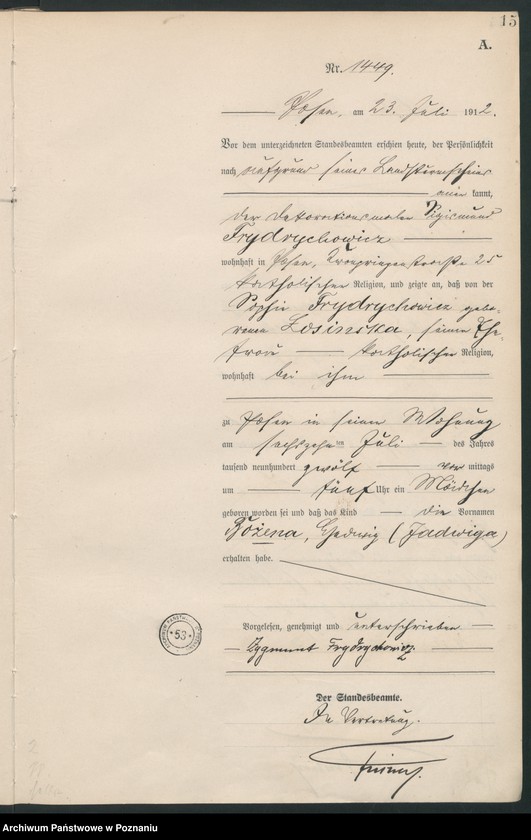 15
A.
Nr. 1449.
Posen, am 23. Juli 1912.
Vor dem unterzeichneten Standesbeamten erschien heute, der Persönlichkeit
nach aufgrund seines Landsturmscheines
kannt,
der Dekorationsmaler Sigismund
Frydrychowicz
wohnhaft in Posen, Kronprinzenstraße 25
katholischer Religion, und zeigte an, daß von der
Sophie Frydrychowicz gebo-
renen Losinska, seiner Ehe-
frau katholischer Religion,
wohnhaft bei ihm
zu Posen in seiner Wohnung
am sechszehnten Juli des Jahres
tausend neunhundert zwölf vormittags
um fünf Uhr ein Mädchen
geboren worden sei und daß das Kind die Vornamen
Bożena, Hedwig (Jadwiga)
erhalten habe.
Vorgelesen, genehmigt und unterschrieben
Zygmunt Frydrychowicz
Der Standesbeamte.
In Vertretung.
53
Archiwum Państwowe w Poznaniu